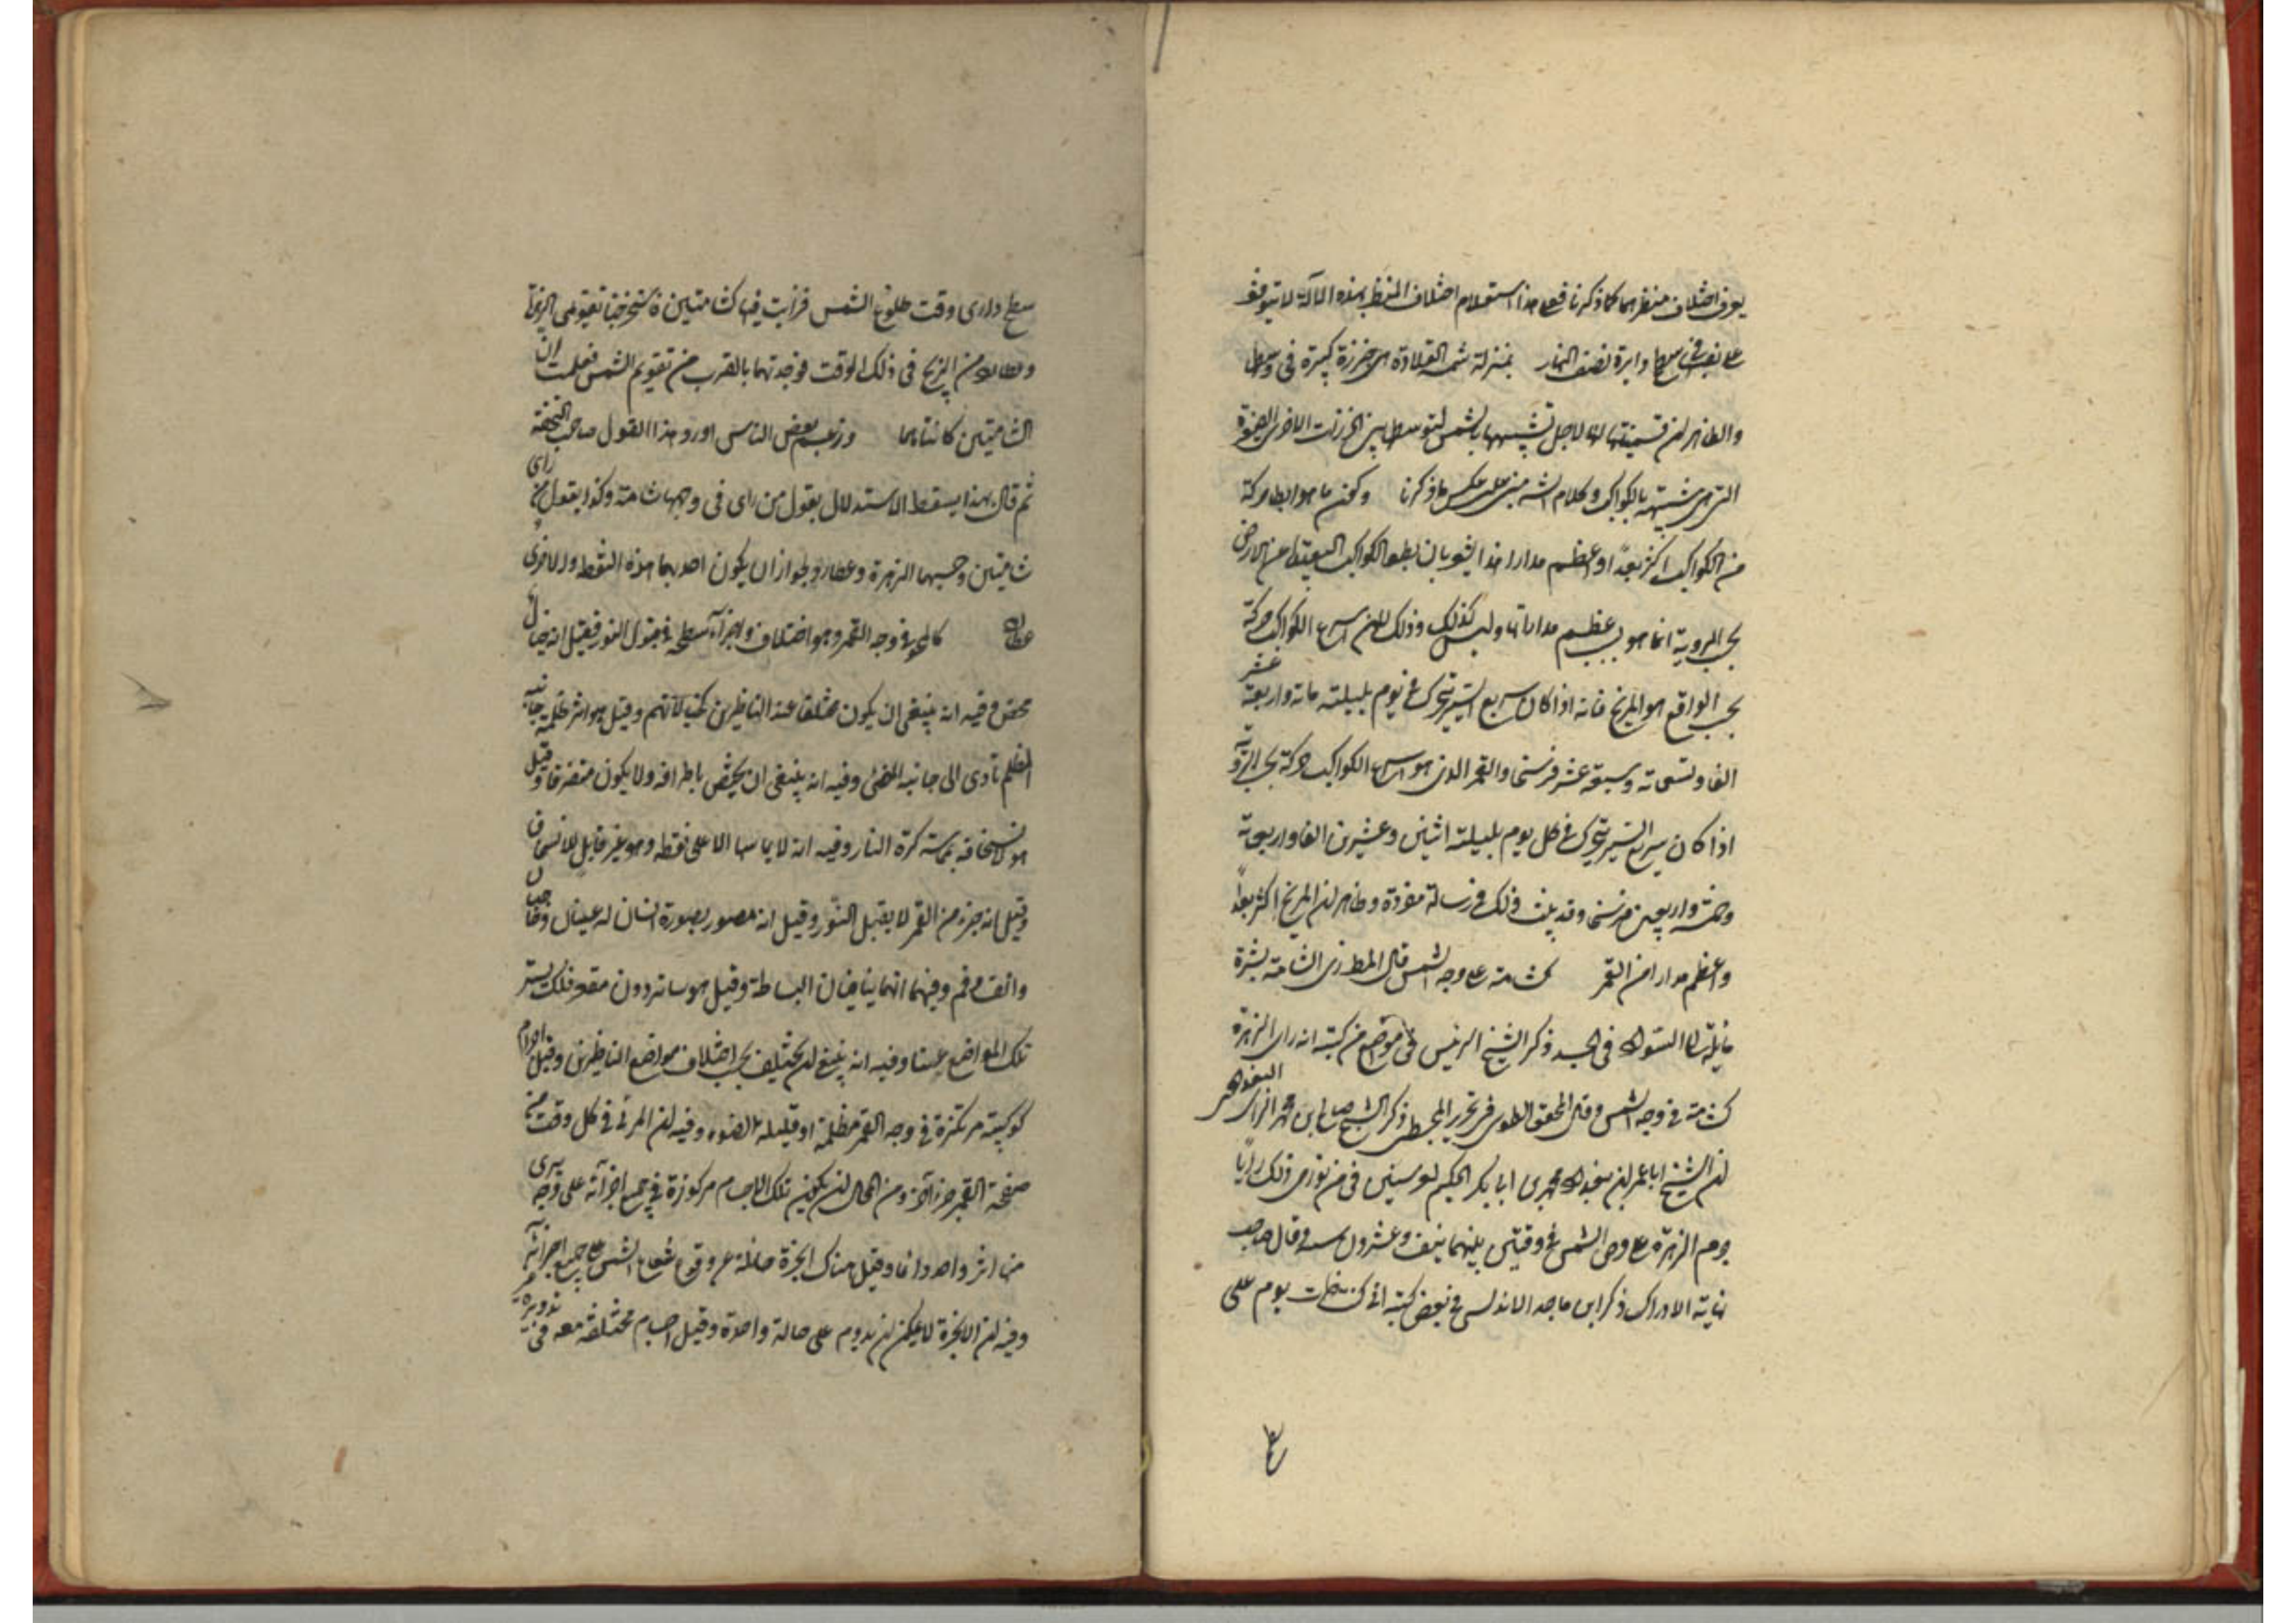 يعرف اختلاف منظرهما كما ذكرنا فعلى هذا استعلام اختلاف المنظر بهذه الآلة لا يتوقف
على نصبها في سطح دايرة نصف النهار بمنزلة شمسة القلادة هى خرزة كبيرة فى وسطها
والظاهر ان تسميتها بها لاجل تشبيهها بالشمس لتوسطها بين الخرزات الاخرى الصغيرة
التى هى شبيهة بالكواكب وكلام الشه مبنى على عكس ما ذكرنا وكون ما هو ابطا حركة
من الكواكب اكثر بعدا او اعظم مدارا هذا يشعر بان بطء الكواكب البعيدة عن الارض
بحسب الروية انما هو بسبب عظم مداراتها وليس كذلك وذلك لان اسرع الكواكب حركة
بحسب الواقع هو المريخ فانه اذا كان سريع السير يتحرك فى يوم بليلته مائة واربعة عشر
الفا وتسعمائة وسبعة عشر فرسخا والقمر الذى هو اسرع الكواكب حركة بحسب الروية
اذا كان سريع السير يتحرك فى كل يوم بليلته اثنين وعشرين الفا واربعمائة
وخمسة واربعين فرسخا وقد بينت ذلك فى رسالة مفردة وظاهر ان المريخ اكثر بعدا
واعظم مدارا من القمر كشامة على وجه الشمس قال المطرزى الشامة بثرة
مايلة الى السواد فى الجسد ذكر الشيخ الرئيس فى موضع من كتبه انه راى الزهرة
كشامة فى وجه الشمس وقال المحقق الطوسى فى تحرير المجسطى ذكر الشيخ صالح بن محمد الزينبى البغدادى
ان الشيخ ابا عمران ببغداد ومحمد بن ابى بكر الحكيم راى
جرم الزهرة على قرص الشمس فى وقتين بينهما نيف وعشرون سنة وقال صاحب
نهاية الادراك ذكر ابن ماجه الاندلسى فى بعض كتبه انى كنت يوم على
سطح دارى وقت طلوع الشمس فرايت فيها كشامتين فاستخرجنا تقويمى الزهرة
وعطارد من الزيج فى ذلك الوقت فوجدتهما بالقرب من تقويم الشمس فعلمت ان
الشامتين كانتا هما وزعم بعض الناس اورد هذا القول صاحب التحفة
ثم قال بهذا يسقط الاستدلال بقول من راى فى وجهها شامة وكذا بقول من راى
شامتين وحسبهما الزهرة وعطارد لجواز ان يكون احديهما هذه النقطة والاخرى
عطارد كالمحو فى وجه القمر وهو اختلاف واجزاء سطحه فى قبول النور فقيل انه خيال
محض وفيه انه ينبغى ان يكون مختلفا عند الناظرين لتخيلاتهم وقيل هو اثر ظلمة جانبه
المظلم تادى الى جانبه المضئ وفيه انه ينبغى ان يختص باطرافه ولا يكون متفرقا وقيل
هو لانسخانه بمماسة كرة النار وفيه انه لا يماسها الا على نقطة وهو غير قابل للانسخان
وقيل انه جزء من القمر لا يقبل النور وقيل انه مصور بصورة انسان له عينان وحاجبان
وانف وفم وفيهما انهما ينافيان البساطة وقيل هو ساتر دون مقعر فلك يستر
تلك المواضع عنا وفيه انه ينبغى ان يختلف بحسب اختلاف مواضع الناظرين وقيل اجرام
كوكبية مرتكزة فى وجه القمر مظلمة او قليلة الضوء وفيه ان المرئى فى كل وقت من
صفحة القمر جزء آخر ومن المحال ان يكون تلك الاجسام مركوزة فى جميع اجزائه على وجه يرى
منها اثر واحد دائما وقيل هناك ابخرة مانعة عن وقوع شعاع الشمس على جميع اجزائه
وفيه ان الابخرة لا يمكن ان يدوم على حالة واحدة وقيل اجسام مختلفة معه فى تدويره